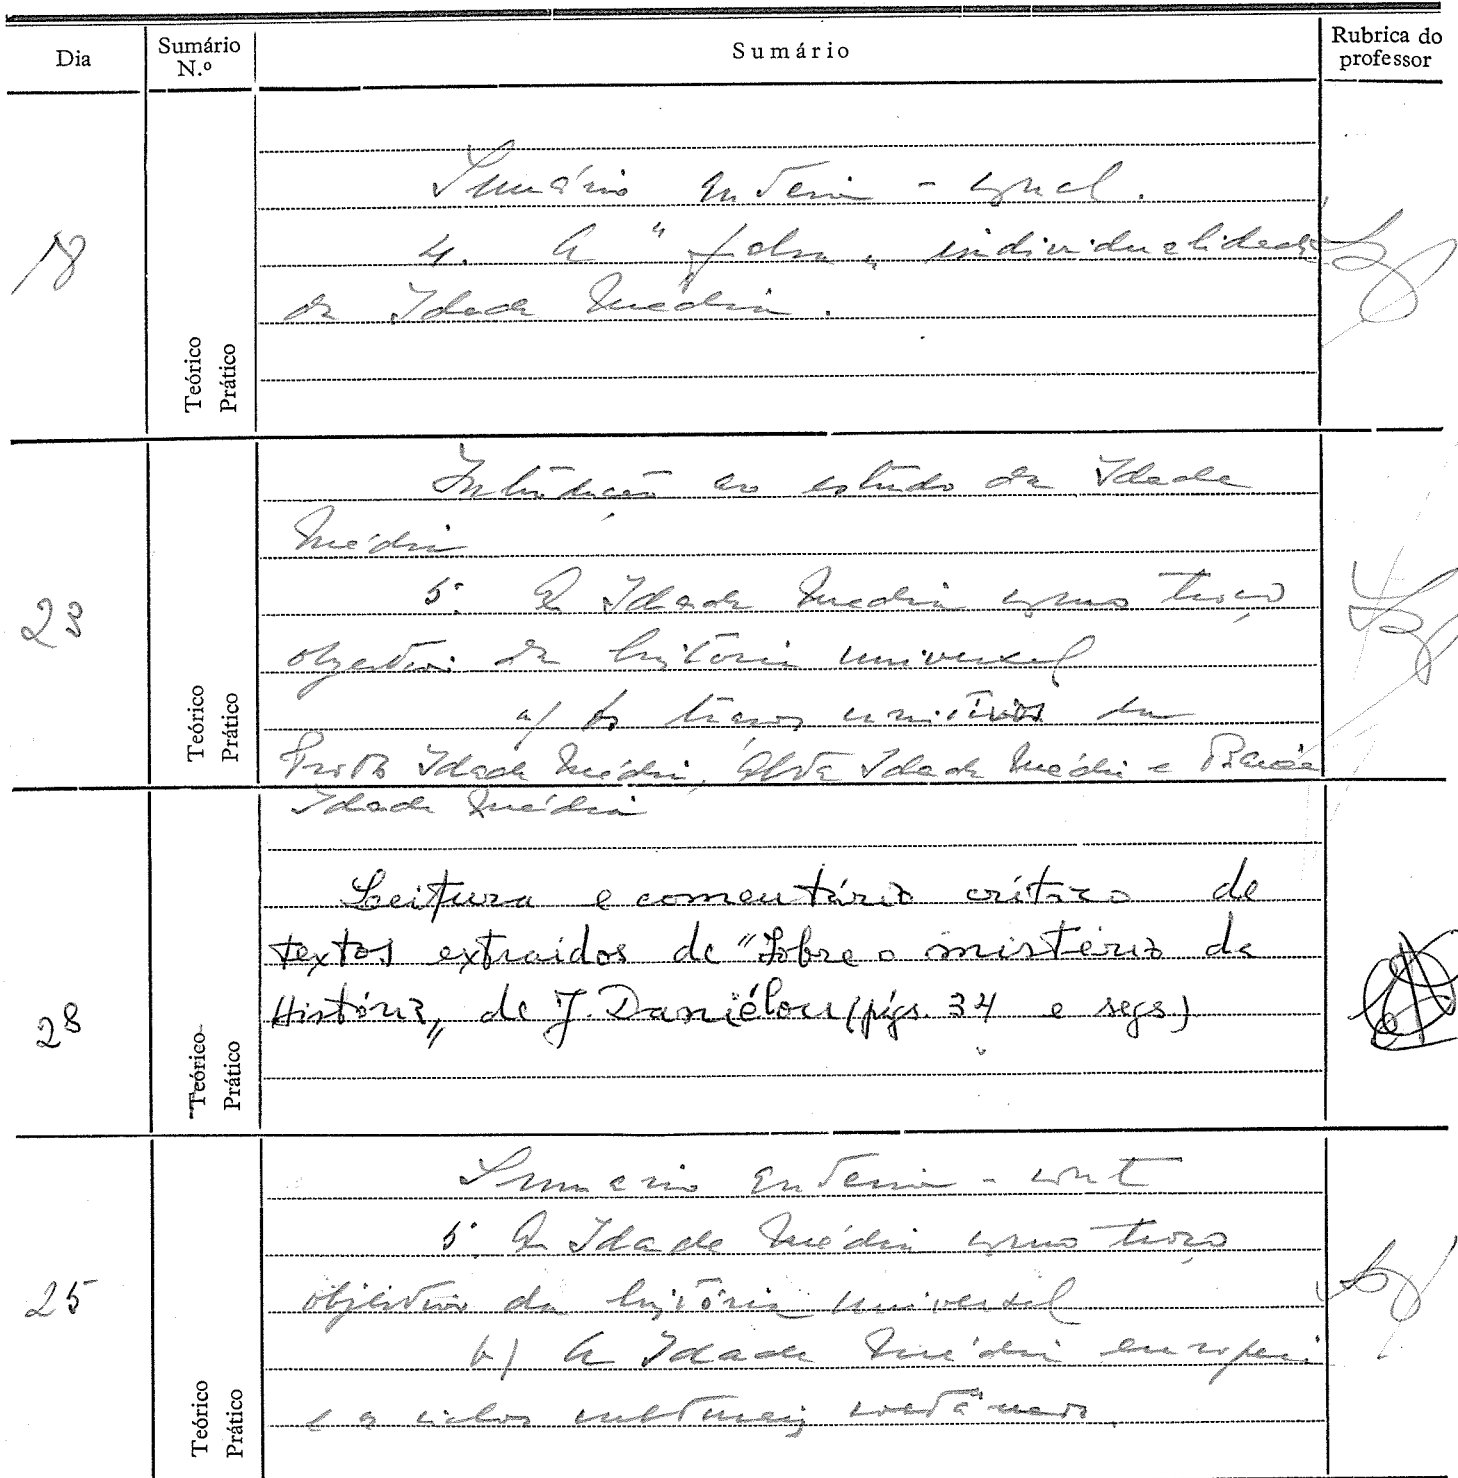 Dia
Sumário
N.º
Sumário
Rubrica do
professor
18
Teórico
Prático
Sumário anterior - concl.
4. A "falsa" individualidade
da Idade Média.
20
Teórico
Prático
Introdução ao estudo da Idade
Média
5. A Idade Média como troço
objectivo da história universal
a) Os traços
Idade Média, Alta Idade Média e Baixa
Idade Média
28
Teórico
Prático
Leitura e comentário crítico de
textos extraídos de "Sobre o mistério da
História" de J. Daniélou (págs. 34 e segs)
25
Teórico
Prático
Sumário anterior - cont
5. A Idade Média como troço
objectivo da história universal
b) A Idade Média europeia
e os ciclos culturais coetâneos.